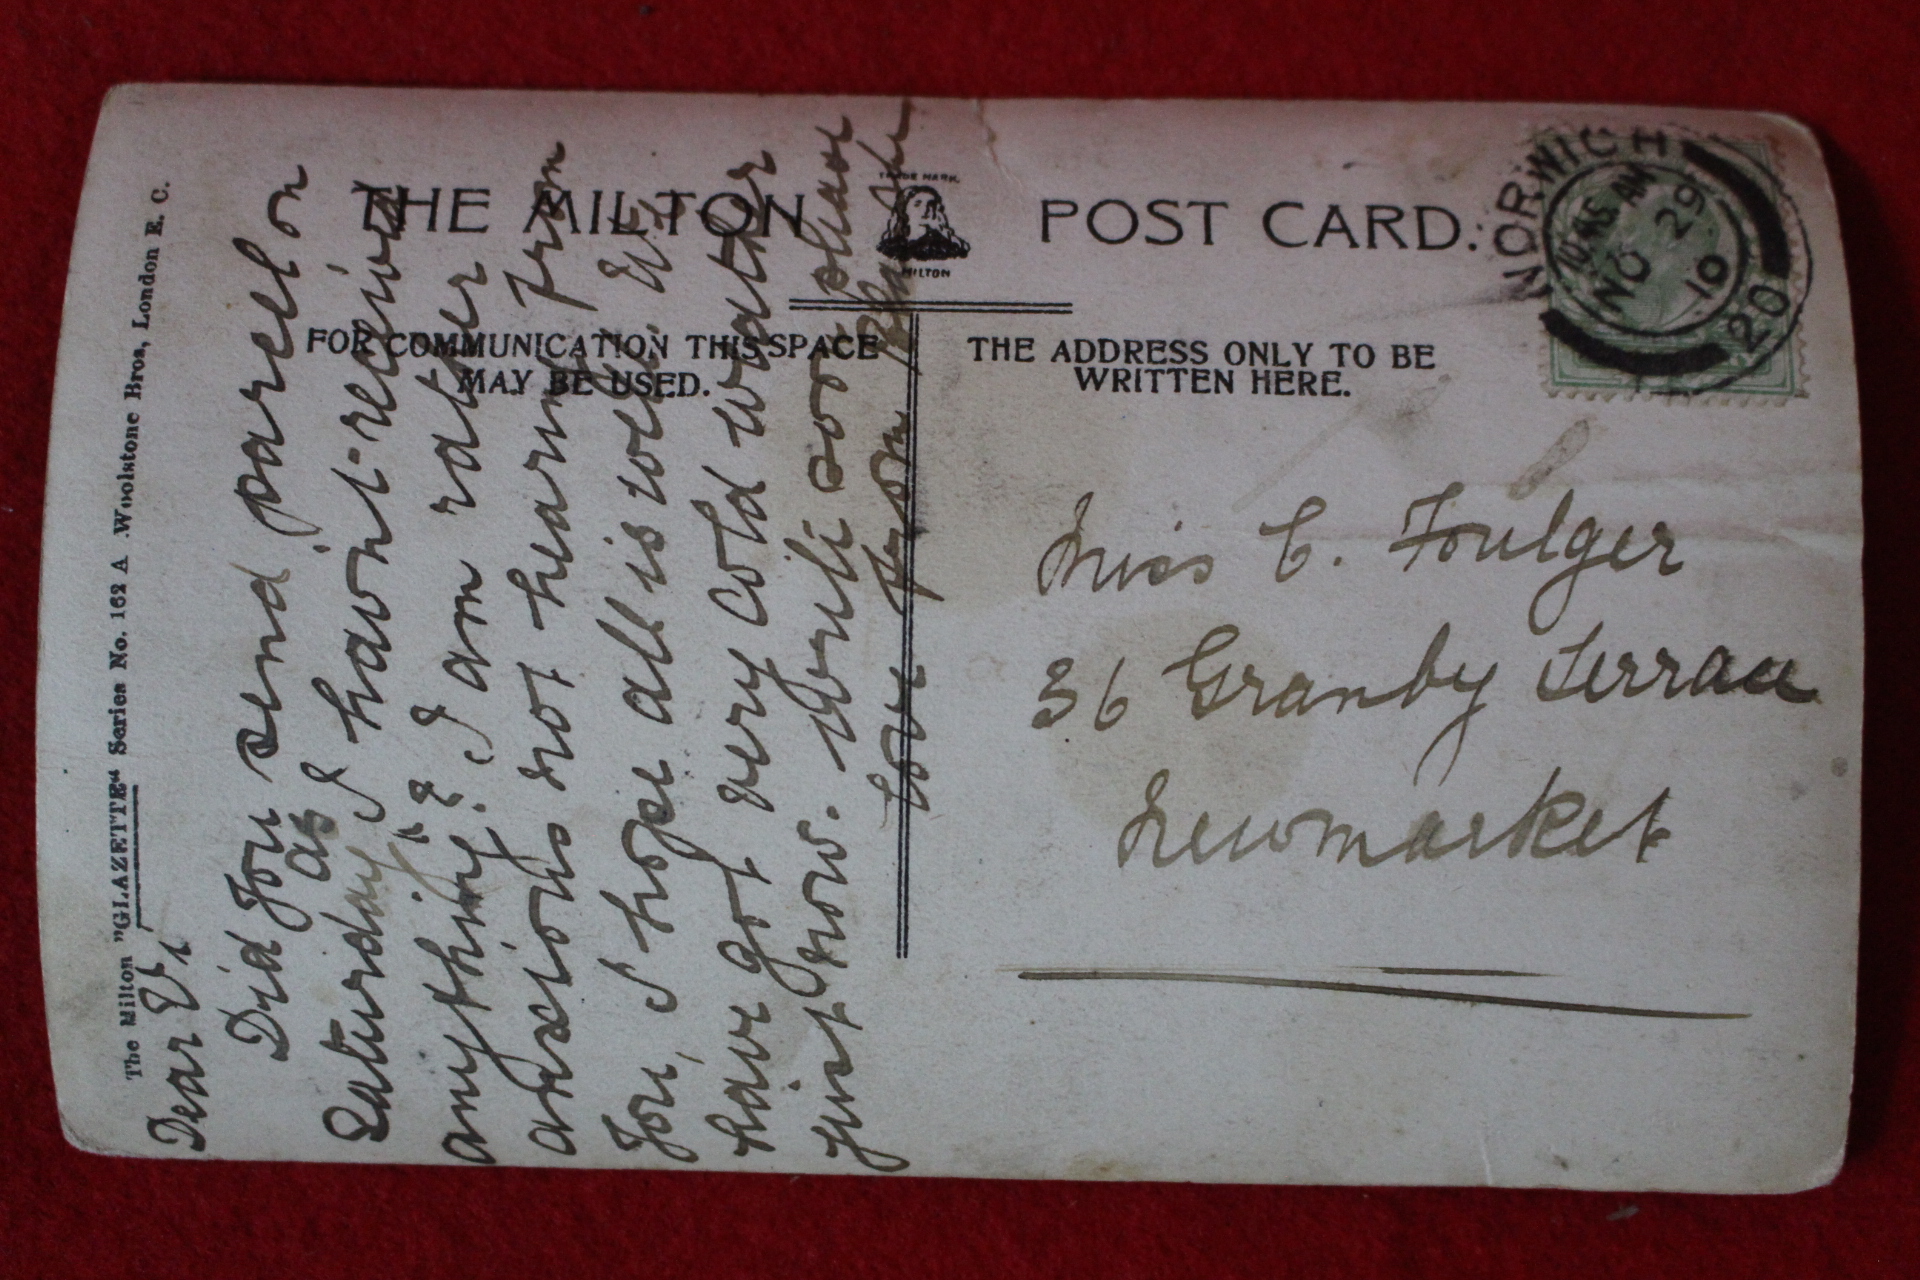 THE MILTON POST CARD.
TRADE MARK.
MILTON
FOR COMMUNICATION THIS SPACE
MAY BE USED.
THE ADDRESS ONLY TO BE
WRITTEN HERE.
NORWICH
10.45 AM
NO 29
10
20
The Milton "GLAZETTE" Series No. 162 A Woolstone Bros, London E. C.
Dear Vi
Did you send parcel on
Saturday as I havnt received
anything? I am rather
anxious not hearing from
you, I hope all is well. We
have got very cold weather
just now. write soon please
love from
Miss C. Foulger
36 Granby Terrace
Newmarket